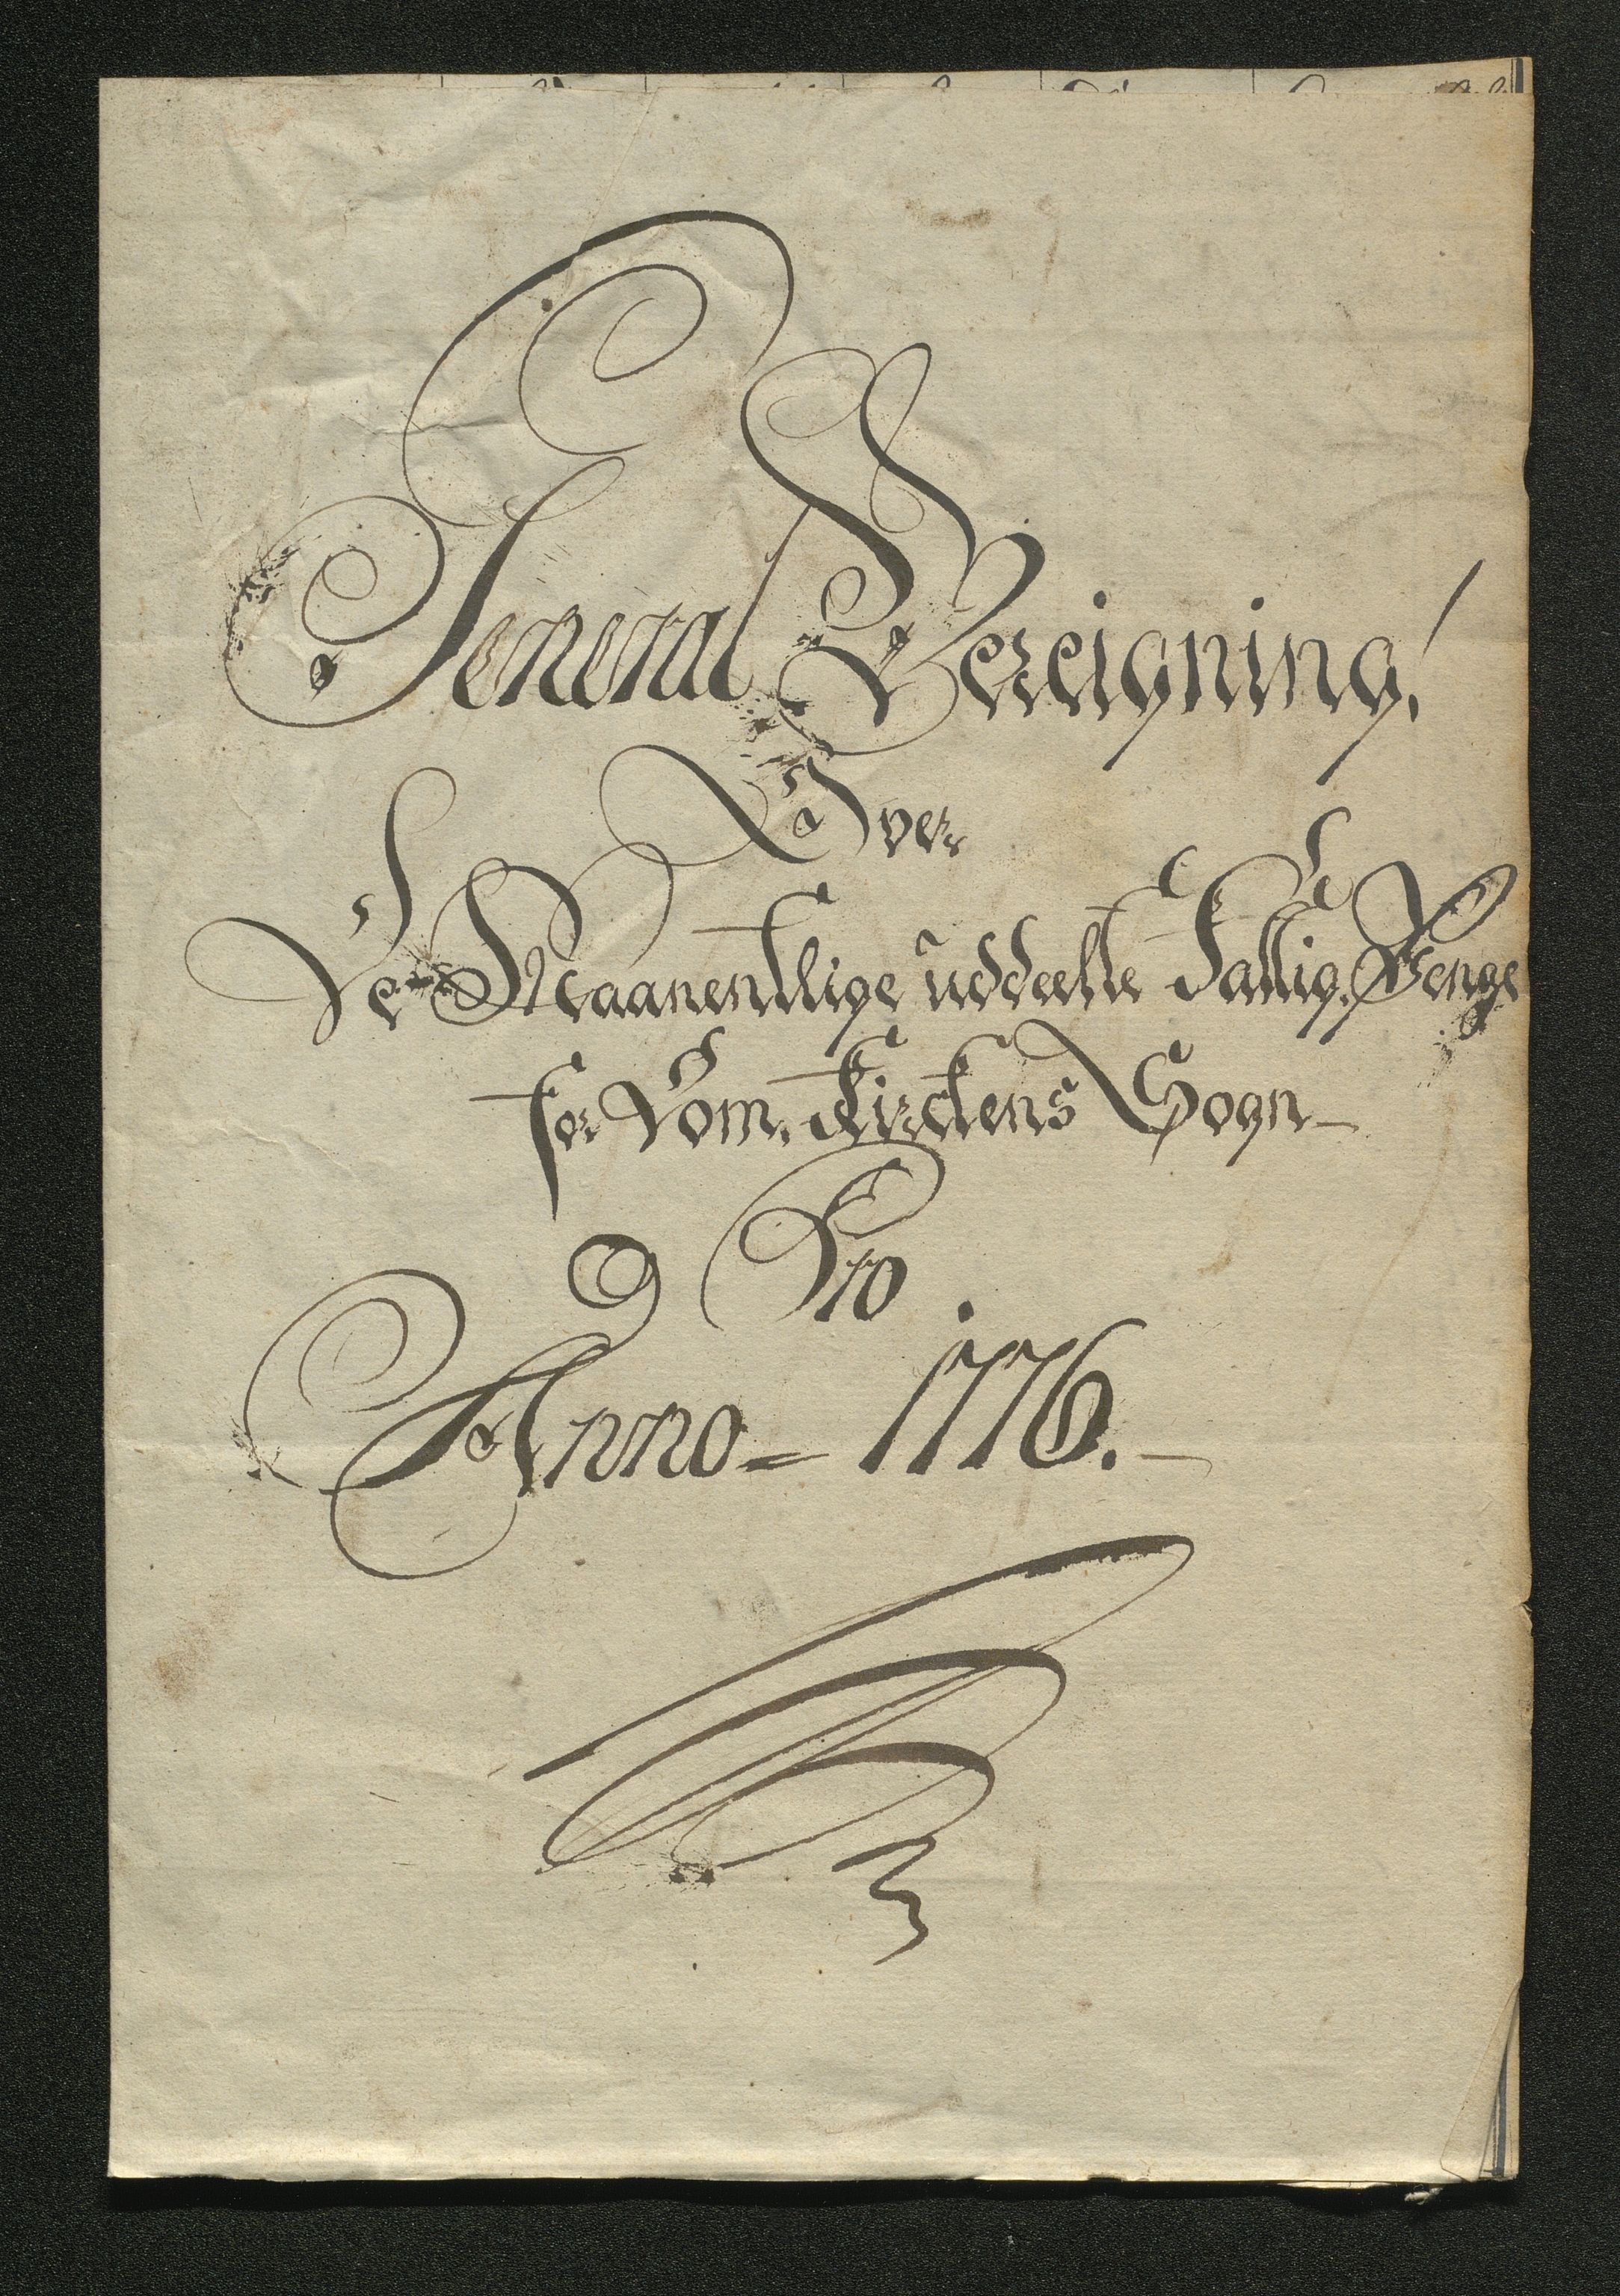 General Bereigning,
Over
De Maanentlige uddeelte Fattig Penge
for Dom Kirckens Sogn
Pro
Anno = 1776.